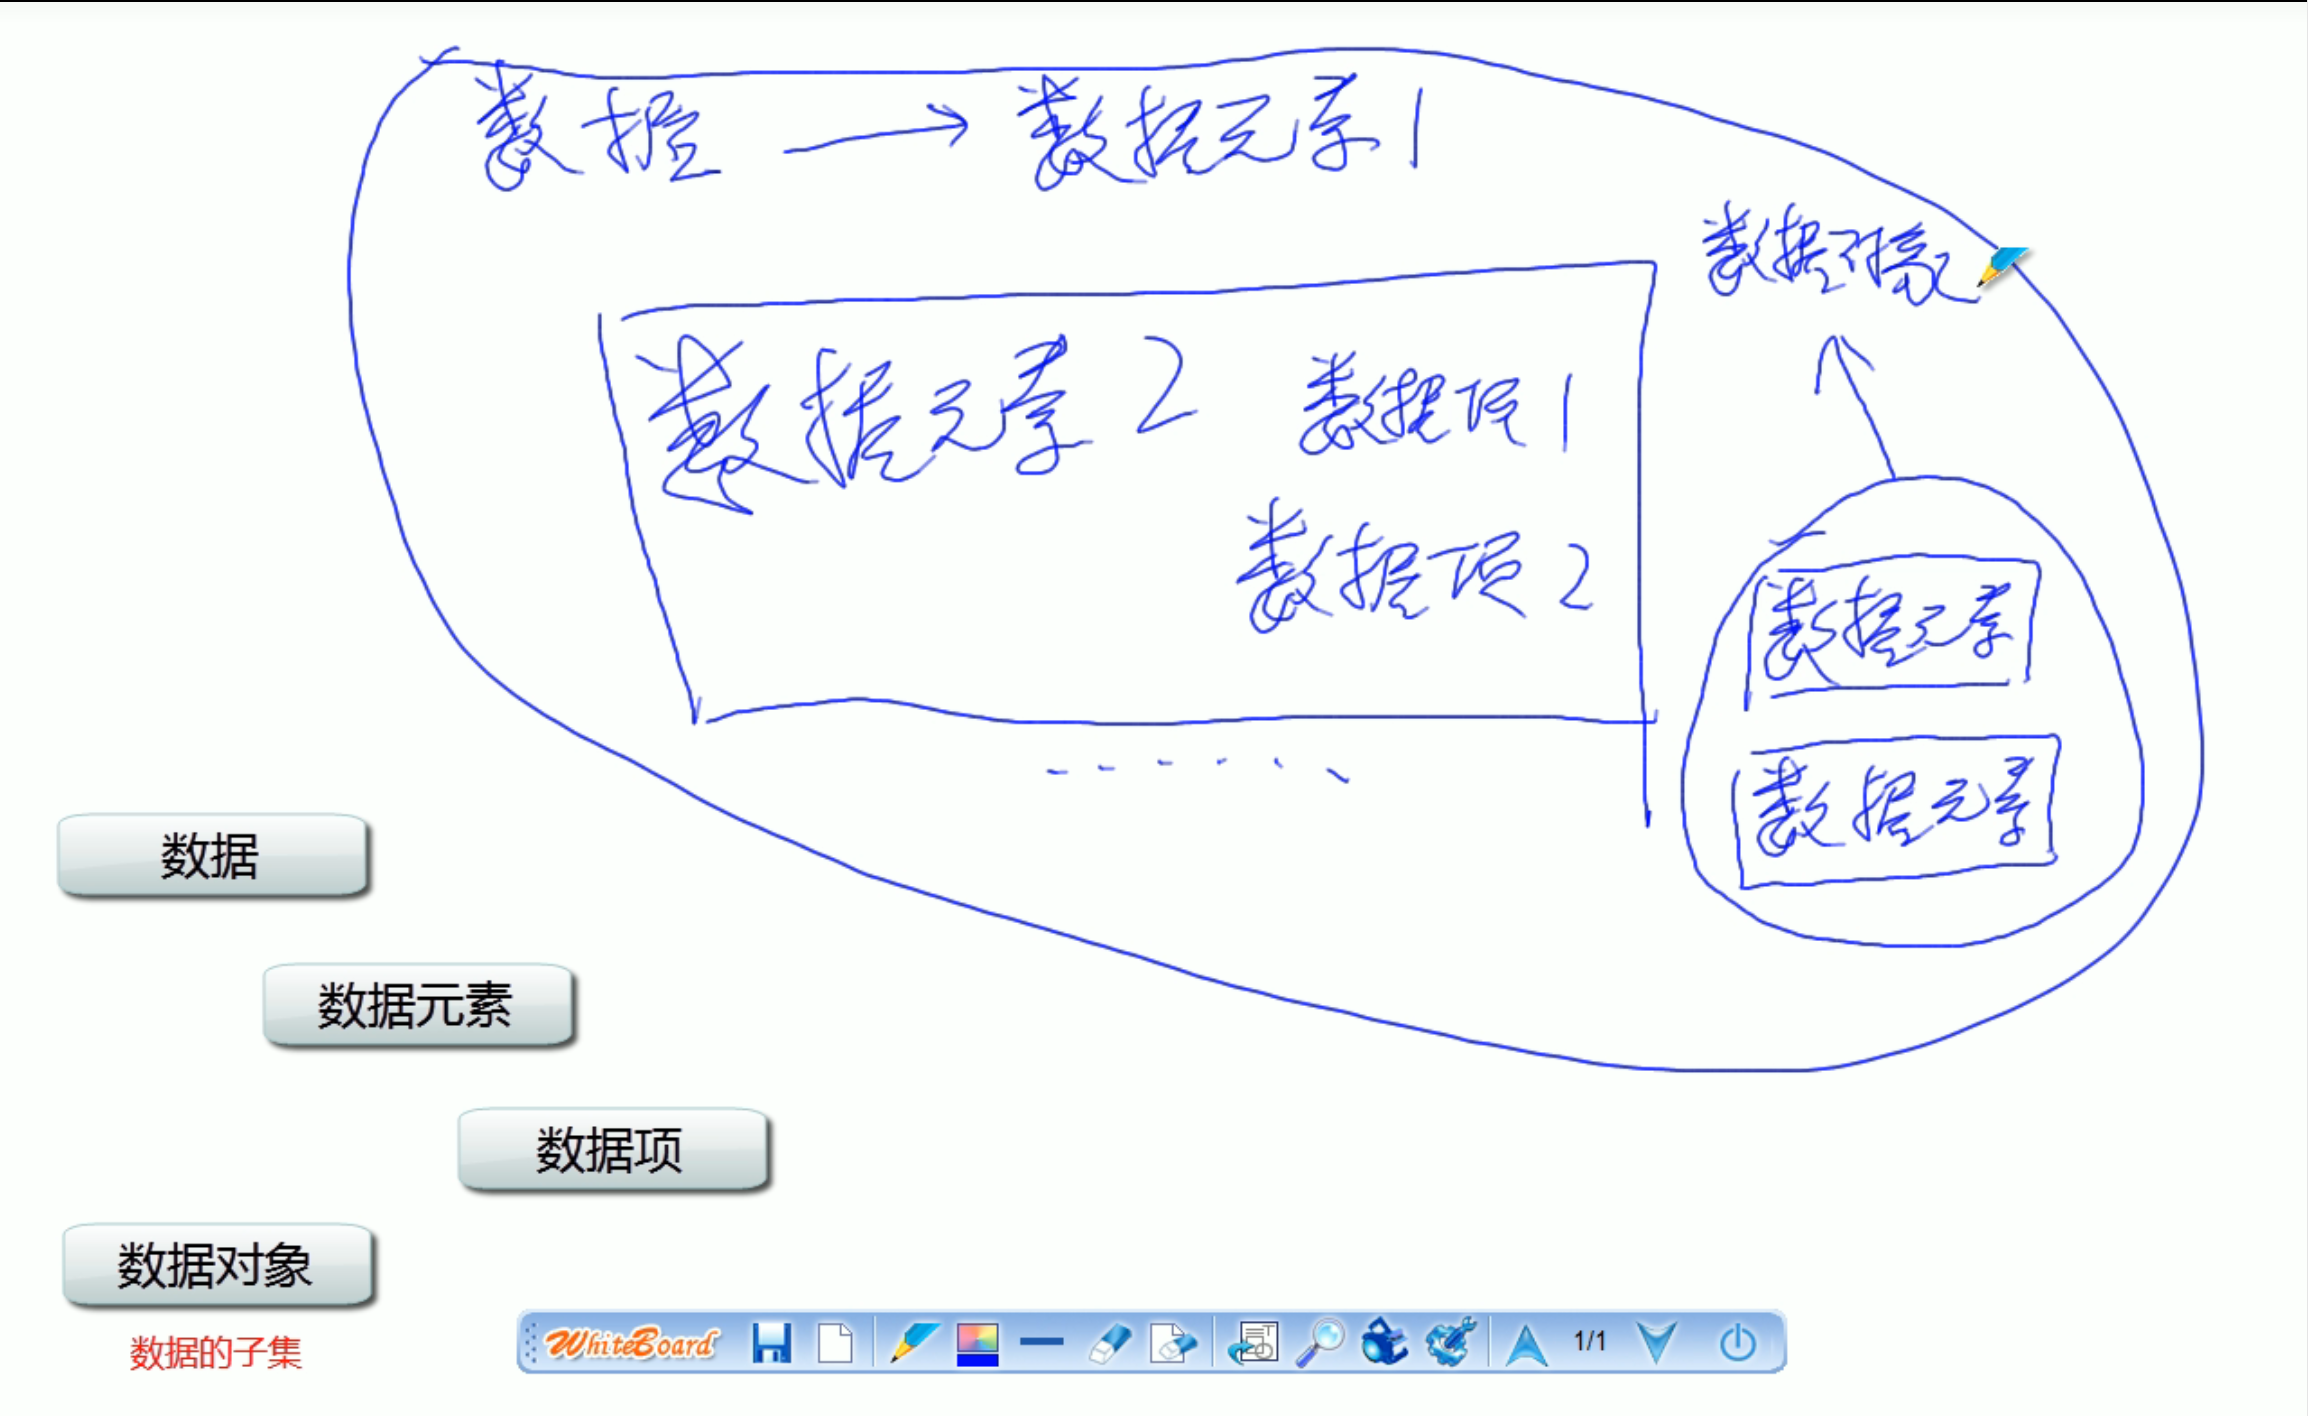 数据 → 数据元素1
数据对象
数据元素2 数据项1
数据项2
数据元素
数据元素
......
数据
数据元素
数据项
数据对象
数据的子集
WhiteBoard 1/1